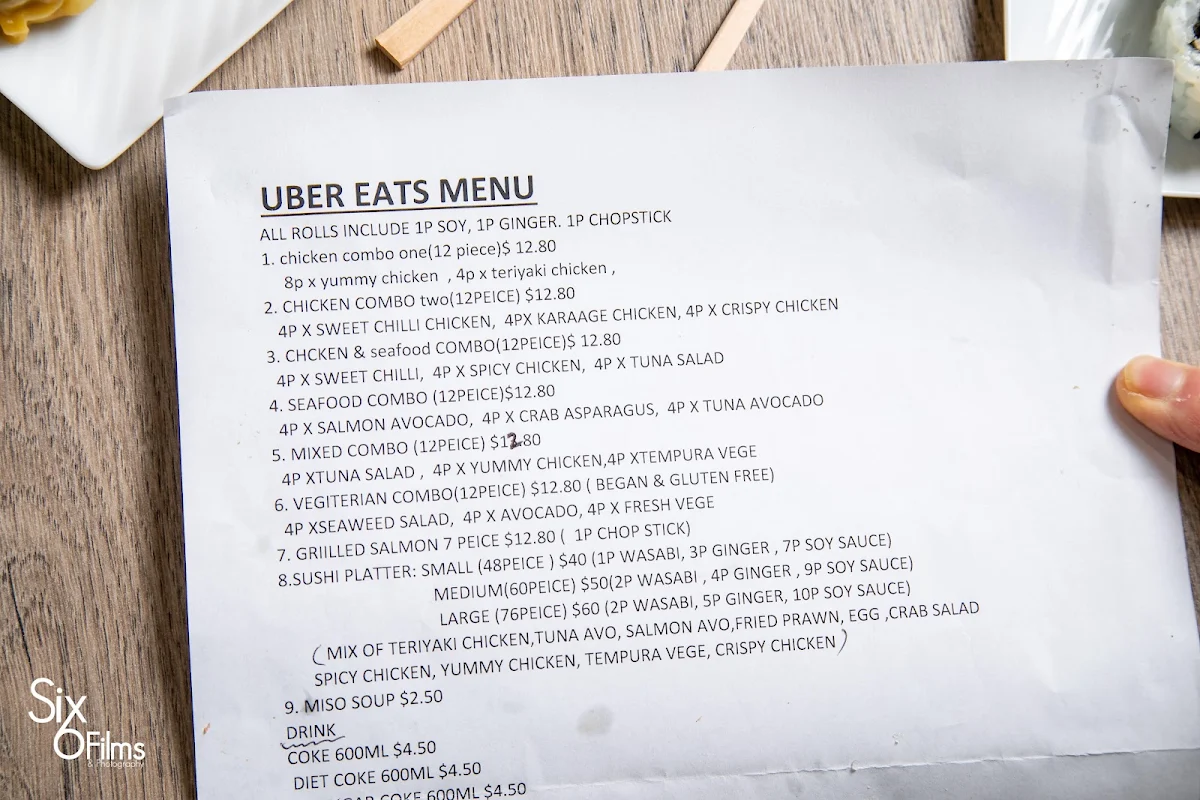 UBER EATS MENU
ALL ROLLS INCLUDE 1P SOY, 1P GINGER. 1P CHOPSTICK
1. chicken combo one(12 piece)$ 12.80
8p x yummy chicken , 4p x teriyaki chicken ,
2. CHICKEN COMBO two(12PEICE) $12.80
4P X SWEET CHILLI CHICKEN, 4PX KARAAGE CHICKEN, 4P X CRISPY CHICKEN
3. CHCKEN & seafood COMBO(12PEICE)$ 12.80
4P X SWEET CHILLI, 4P X SPICY CHICKEN, 4P X TUNA SALAD
4. SEAFOOD COMBO (12PEICE)$12.80
4P X SALMON AVOCADO, 4P X CRAB ASPARAGUS, 4P X TUNA AVOCADO
5. MIXED COMBO (12PEICE) $12.80
4P XTUNA SALAD , 4P X YUMMY CHICKEN,4P XTEMPURA VEGE
6. VEGITERIAN COMBO(12PEICE) $12.80 ( BEGAN & GLUTEN FREE)
4P XSEAWEED SALAD, 4P X AVOCADO, 4P X FRESH VEGE
7. GRIILLED SALMON 7 PEICE $12.80 ( 1P CHOP STICK)
8.SUSHI PLATTER: SMALL (48PEICE ) $40 (1P WASABI, 3P GINGER , 7P SOY SAUCE)
MEDIUM(60PEICE) $50(2P WASABI , 4P GINGER , 9P SOY SAUCE)
LARGE (76PEICE) $60 (2P WASABI, 5P GINGER, 10P SOY SAUCE)
( MIX OF TERIYAKI CHICKEN,TUNA AVO, SALMON AVO,FRIED PRAWN, EGG ,CRAB SALAD
SPICY CHICKEN, YUMMY CHICKEN, TEMPURA VEGE, CRISPY CHICKEN )
9. MISO SOUP $2.50
DRINK
COKE 600ML $4.50
DIET COKE 600ML $4.50
COKE 600ML $4.50
Six
6Films
& Photography